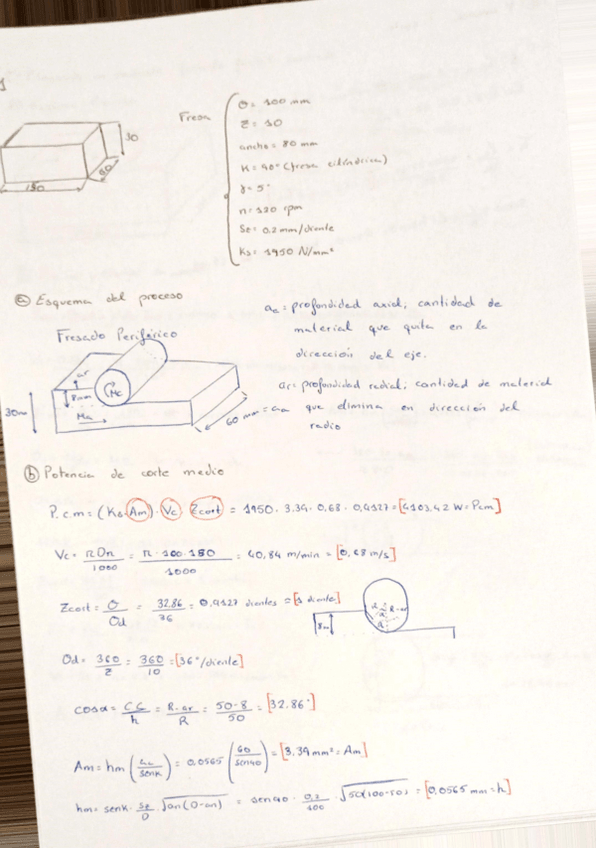 30
150
Fresa
Θ = 100 mm
Z = 10
ancho = 80 mm
K = 90° (fresa cilíndrica)
γ = 5°
n = 120 rpm
Sz = 0.2 mm/diente
Ks = 1950 N/mm²
ⓐ Esquema del proceso
Fresado Periférico
ar
8mm
Mc
Ma
30mm
60 mm = aa
aa = profundidad axial; cantidad de
material que quita en la
dirección del eje.
ar = profundidad radial; cantidad de material
que elimina en dirección del
radio
ⓑ Potencia de corte medio
P.c.m = (Ks·Am)·Vc Zcort = 1950 · 3.39 · 0,68 · 0,9127 = [4103,42 W = Pcm]
Vc = πDn/1000 = π·100·130/1000 = 40,84 m/min = [0,68 m/s]
Zcort = Θ/Θd = 32.86/36 = 0,9127 dientes = [1 diente]
R-ar
8mm
Θd = 360/Z = 360/10 = [36°/diente]
cosα = CC/h = R-ar/R = 50-8/50 = [32.86°]
Am = hm (aa/senK) = 0,0565 (60/sen90) = [3,39 mm² = Am]
hm = senK · Sz/D √ar(D-ar) = sen90 · 0,2/100 = [0,0565 mm = h]